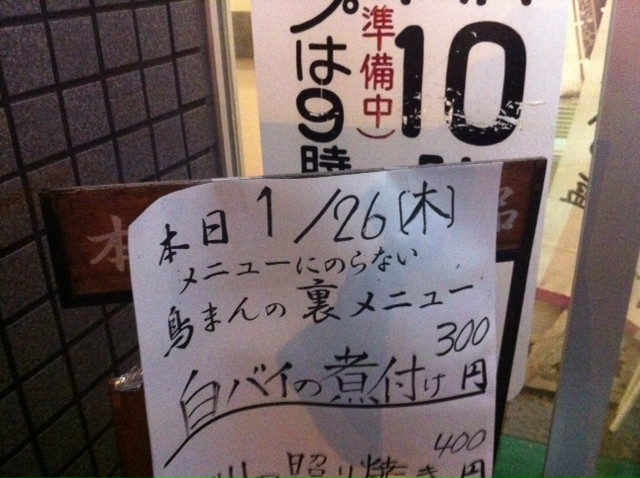 プは9時
(準備中)
10
本
品
本日1/26(木)
メニューにのらない
鳥まんの裏メニュー
300
白バイの煮付け円
400
の照り焼き円